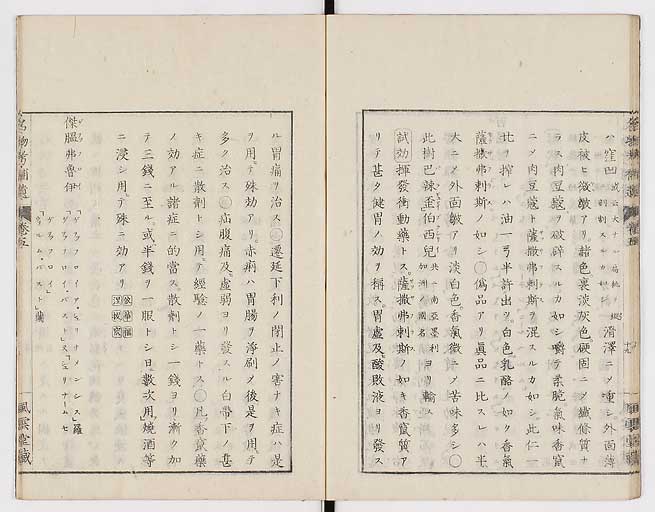 ハ窪凹 滑澤ニ〆重シ外面薄
皮被ヒ微皺アリ赭色裏淡灰色硬固ニ〆纎條質ナ
ラス肉豆蔲ヲ破碎スルカ如シ嚼テ柔脆氣味香竄
ニ〆肉豆蔲ト薩撒弗剌斯ヲ混スルカ如シ此仁一
ヒヲ搾レハ油一弓半許出ツ白色乳酪ノ如ク香氣
薩撒弗剌斯ノ如シ○偽品アリ眞品ニ比スレハ半
大ニ〆外面皺アリ淡白色香氣微ニ〆苦味多シ○
此樹巴辣歪伯西兒 共ニ南亞墨利加洲ノ國名 ヨリ輸ス
試効揮發衝動藥トス薩撒弗剌斯ノ如キ香竄質ア
リテ甚タ健胃ノ効ヲ稱ス胃虚及酸敗液ヨリ發ス
ル胃痛ヲ治ス○遷延下利ノ閉止ノ害ナキ症ハ是
ヲ用テ殊効アリ赤痢ハ胃腸ヲ淨刷〆後是ヲ用テ
多ク治ス○疝腹痛及虚弱ヨリ發スル白帶下ノ甚
キ症ニ散劑トシ用テ經驗ノ一藥トス○凡香竄藥
ノ効アル諸症ニ的當ス散劑トシ一錢ヨリ漸ク加
テ三錢ニ至ル或半錢ヲ一服トシ日數次用燒酒等
ニ浸シ用テ殊ニ効アリ
傑𦞦弗魯伊
名物考補遺 卷五
風雲堂藏